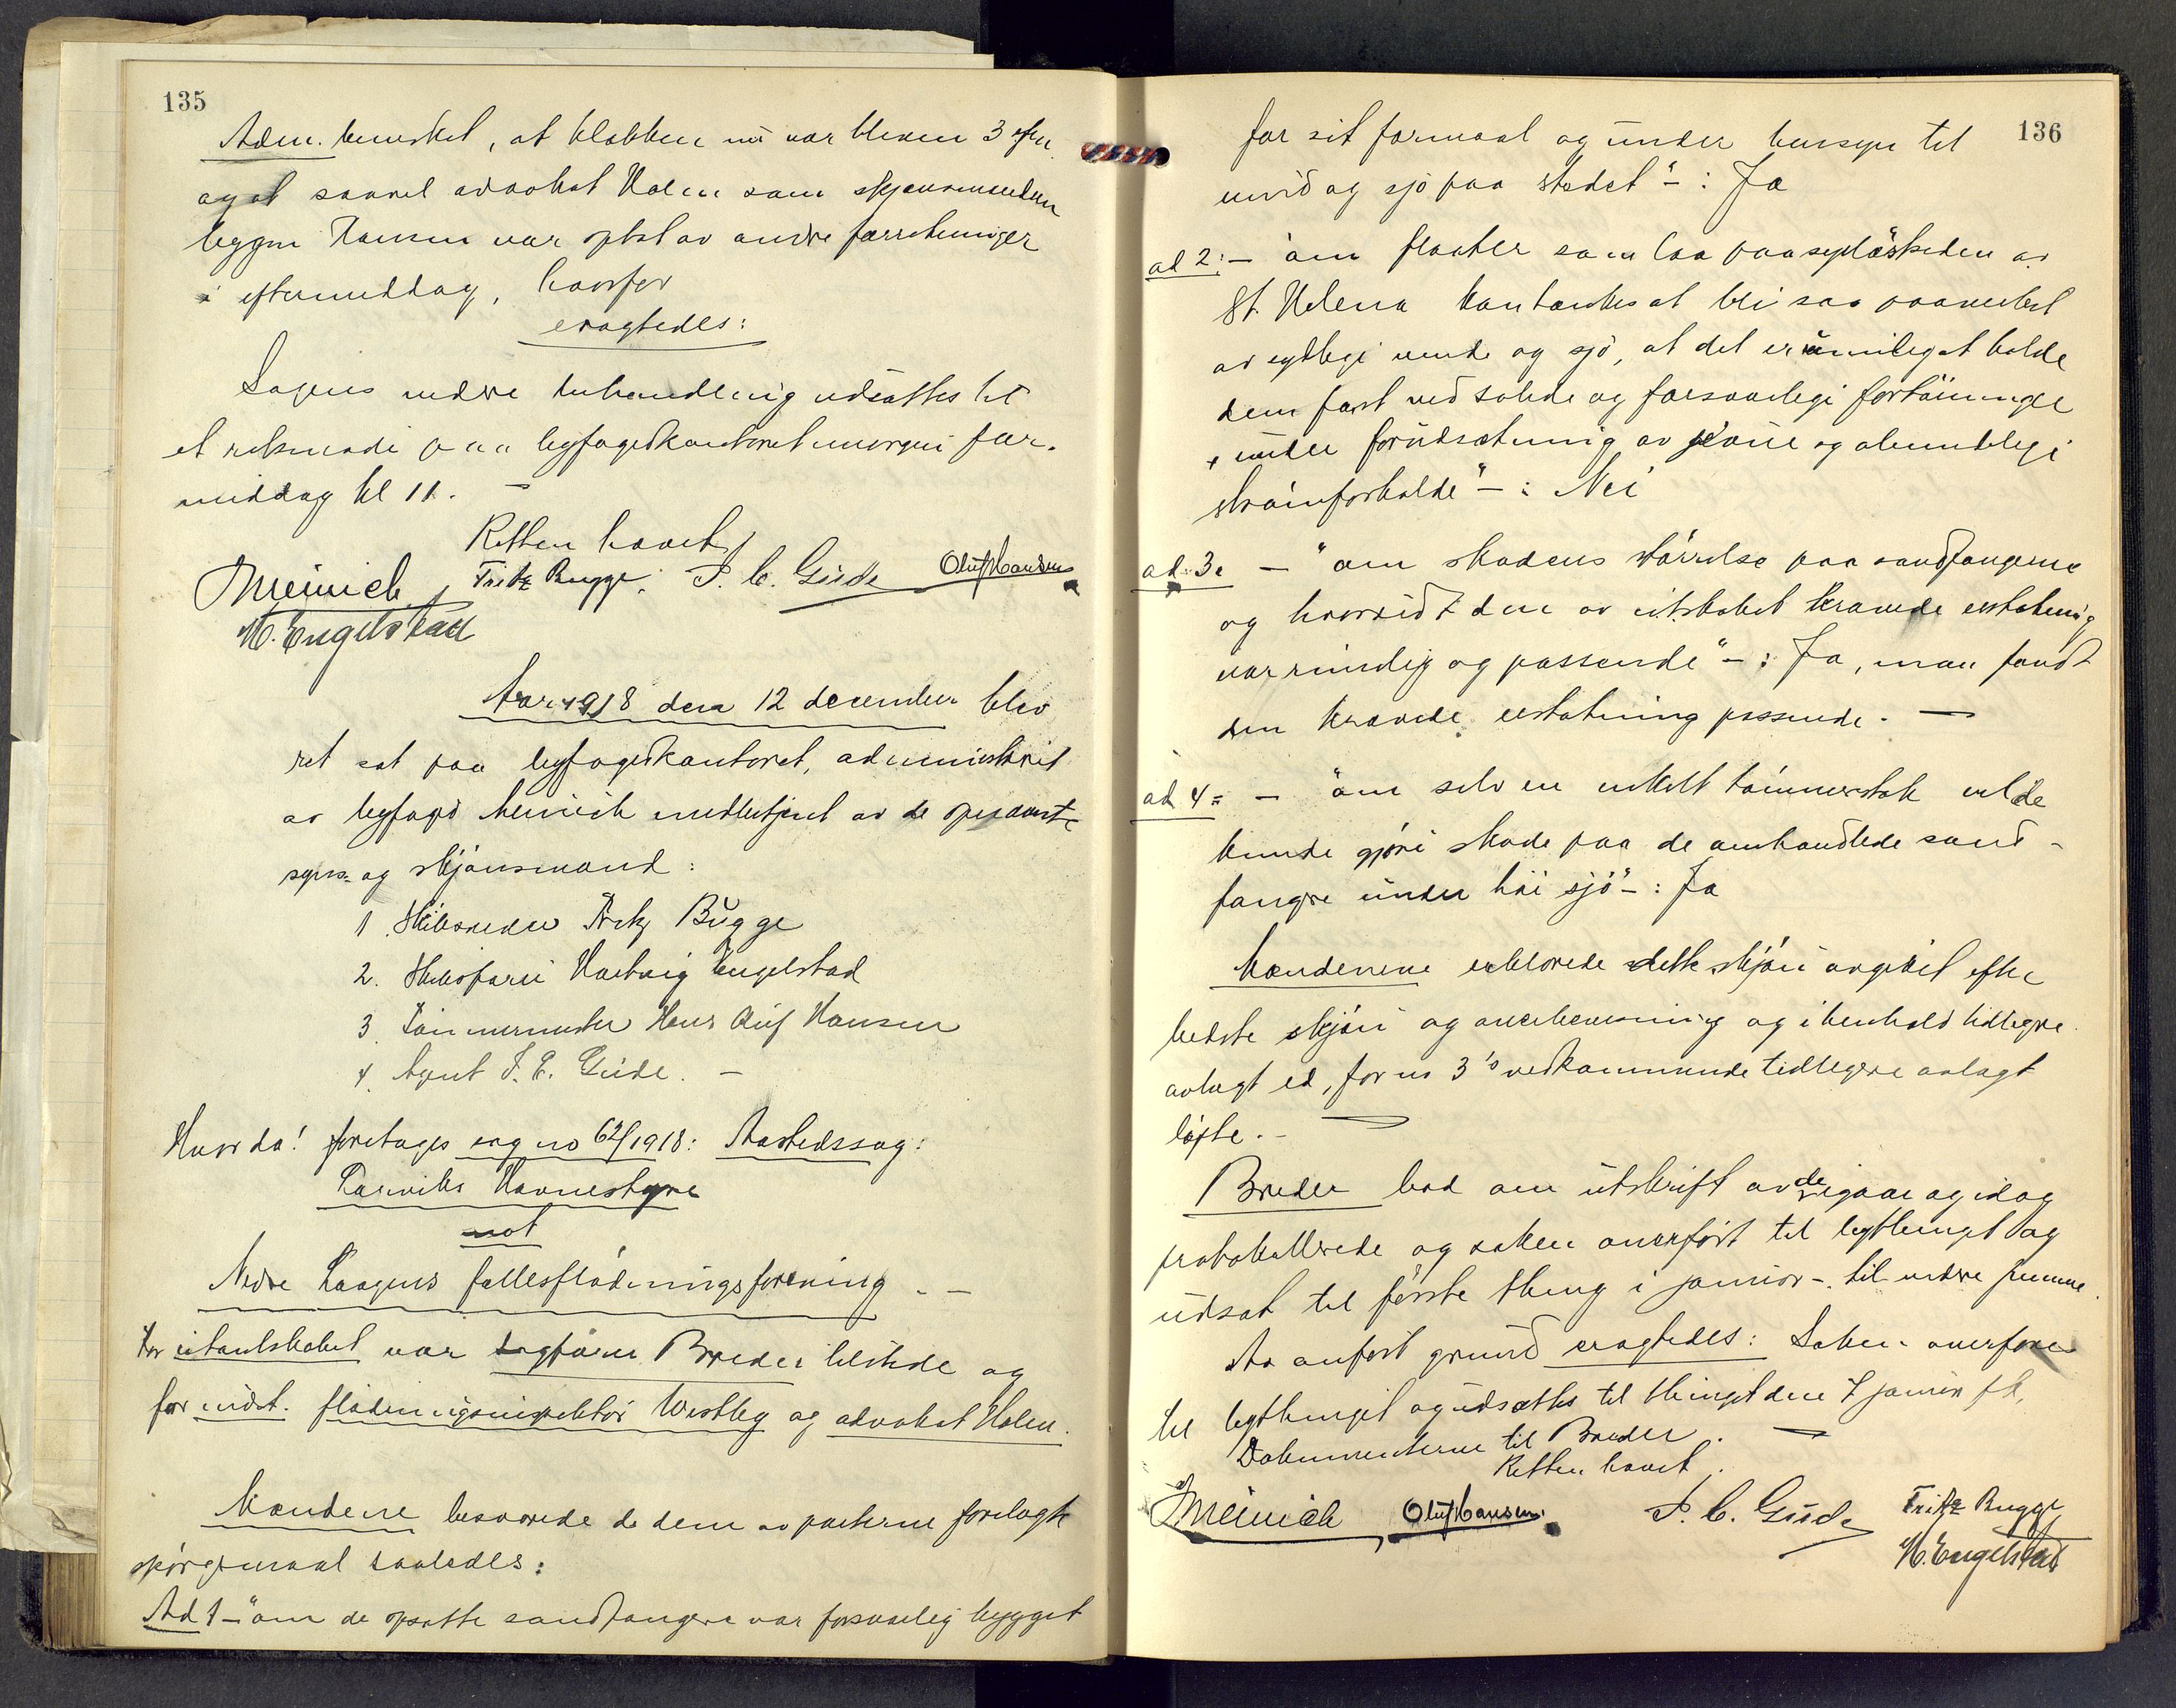 135
Adm. bemerket, at klokken nu var bleven 3 efm
og at saavel advokat Holm som skjønsmanden
bygm Hansen var optat av andre forretninger
i eftermiddag, hvorfor
eragtedes:
Sagens videre behandling utsættes til
et retsmøde paa byfogedkontoret morgen for-
middag kl 11. –
Retten hævet
JMeinich Fritz Bugge. P. C. Güde Oluf Hansen
H. Engelstad
Aar 1918 den 12 december blev
ret sat paa byfogedkontoret, administrert
av byfoged Meinich medbetjent av de opnævnte
syns- og skjønsmænd:
1. Skibsreder Fritz Bugge
2. Skibsfører Hartvig Engelstad
3. Tømmermester Hans Oluf Hansen
4. Agent P. C. Güde. –
Hvorda! foretages sag no 62/1918: Aastedssag:
Larviks Havnestyre
mot
Nedre Laagens fællesflødningsforening. –
For citantskapet var sagfører Breder tilstede og
for indst. flødningsinspektør Westby og advokat Holm.
Mændene besvarede de dem av parterne forelagte
spørgsmaal saaledes:
Ad 1 – "om de opsatte sandfangere var forsvarlig bygget
136
for sit formaal og under hensyn til
vind og sjø paa stedet" – : Ja
ad 2: – "om flaater som laa paa sydøstsiden av
St. Helena kan tænkes at bli saa paavirket
av sydlige vinde og sjø, at det er umulig at holde
dem fast ved solide og forsvarlige fortøininger
under forutsætning av jevne og almindelige
strømforholde" – : Nei
ad. 3. – "om skadens størrelse paa sandfangerne
og hvorvidt den av cit.skapet krævede erstatning
var rimelig og passende" – : Ja, man fandt
den krævede erstatning passende. –
ad 4 = – "om selv en enkelt tømmerstok vilde
kunde gjøre skade paa de omhandlede sand-
fangre under høi sjø" – : Ja
Mændenene erklærede dette skjøn avgivet efter
bedste skjøn og overbevisning og i henhold tidligere
avlagt ed, for no 3's vedkommende tidligere avlagt
løfte. –
Breder bad om utskrift av det igaar og idag
protokollerede og saken overført til bythinget og
udsat til første thing i januar – til videre fremme.
Av anført grund eragtedes: Saken overføres
til bythinget og udsættes til thinget den 7 januar f k,
Dokumenterne til Breder. –
Retten hævet.
JMeinich Oluf Hansen. P. C. Güde Fritz Bugge
H. Engelstad